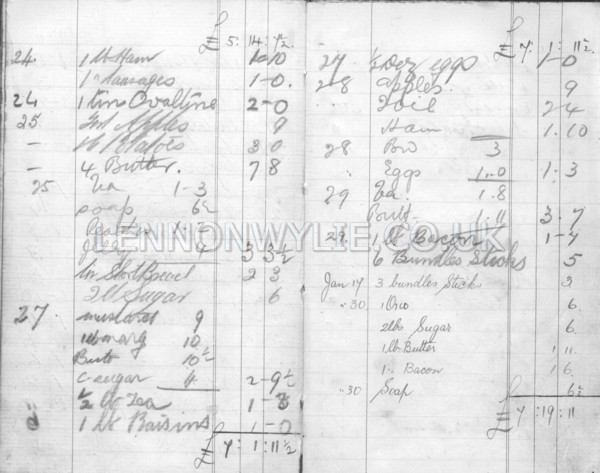 £ 5: 14: 7½
24. 1 lb Ham 1-10
1 " Sausages 1-0.
24 1 tin Ovaltine 2-0
25. Apples 9
- 3 0
- 4 Butter. 7 8
25 Tea 1-3
soap 6½
4 3 3½
Shortbread 2 3
2 lb Sugar 6
27. mustard 9
1 lb marg 10
10½
c-sugar 4 2-9½
½ lb Tea 1-3
1 lb Raisins 1-0
£ 7: 1: 11½
£ 7: 1: 11½
27 ½ Doz eggs 1-0
28 Apples. 9
" 2-4
Ham 1.10
28 3
" Eggs 1.0 1.3
29 Tea. 1.8
1.11 3.7
29. 1 lb Bacon 1-4
6 Bundles Sticks 5
Jan 14 3 bundles Stick 2
" 30 1 Oxo 6.
2 lbs Sugar 6.
1 lb Butter 1 11.
1 " Bacon 1 6.
" 30 Soap 6½
£ 7: 19: 11
LENNONWYLIE.CO.UK